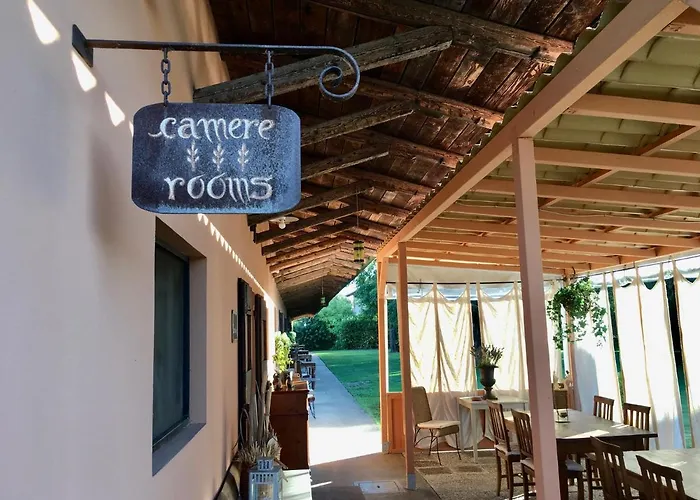 camere
rooms